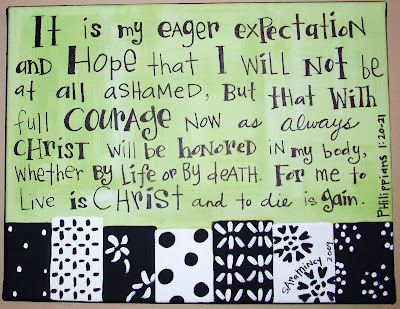 It is my eager expectation
and Hope that I will not be
at all ashamed, But that with
full Courage now as always
Christ will be honored in my body,
whether By Life or By death. For me to
Live is Christ and to die is gain.
Philippians 1:20-21
SARAMINCY
2009